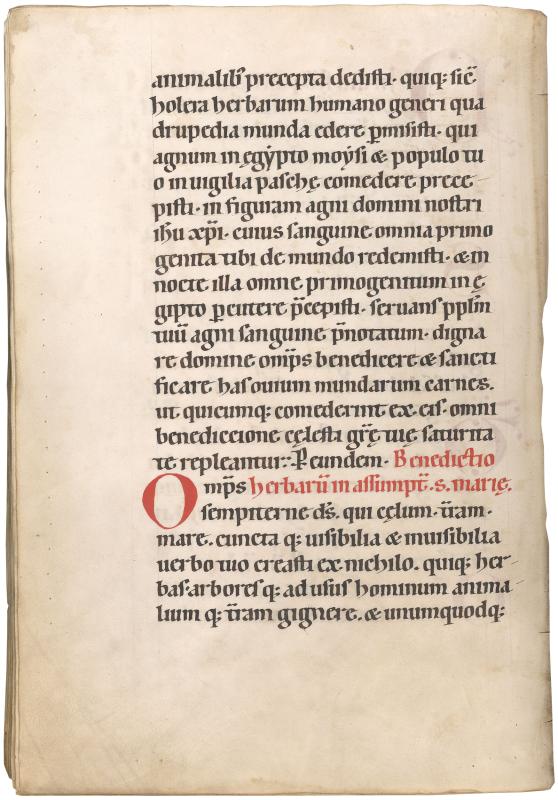 animalib; precepta dedisti· quiq; sic̄
holera herbarum humano generi qua
drupedia munda edere p̄misisti· qui
agnum in ęgẏpto moẏsi & populo tu
o in uigilia paschę comedere prece
pisti· in figuram agni domini nostri
ihu xp̄i· cuius sanguine omnia primo
genita tibi de mundo redemisti· & in
nocte illa omne primogenitum in ę
gipto ꝑcutere p̄cepisti· seruans pplm̄
tuū agni sanguine p̄notatum· digna
re domine omp̄s benedicere & sancti
ficare has ouium mundarum carnes.
ut quicumq; comederint ex eis· omni
benediccione cęlesti gr̄ę tuę saturita
te repleantur: P eundem· Benedictio
Omp̄s herbarū in assumpt̄·s·marię.
sempiterne ds̄· qui cęlum· tr̄am·
mare· cuncta q; uisibilia & inuisibilia
uerbo tuo creasti ex nichilo. quiq; her
bas· arbores q; ad usus hominum anima
lium q; tr̄am gignere· & unumquodq;